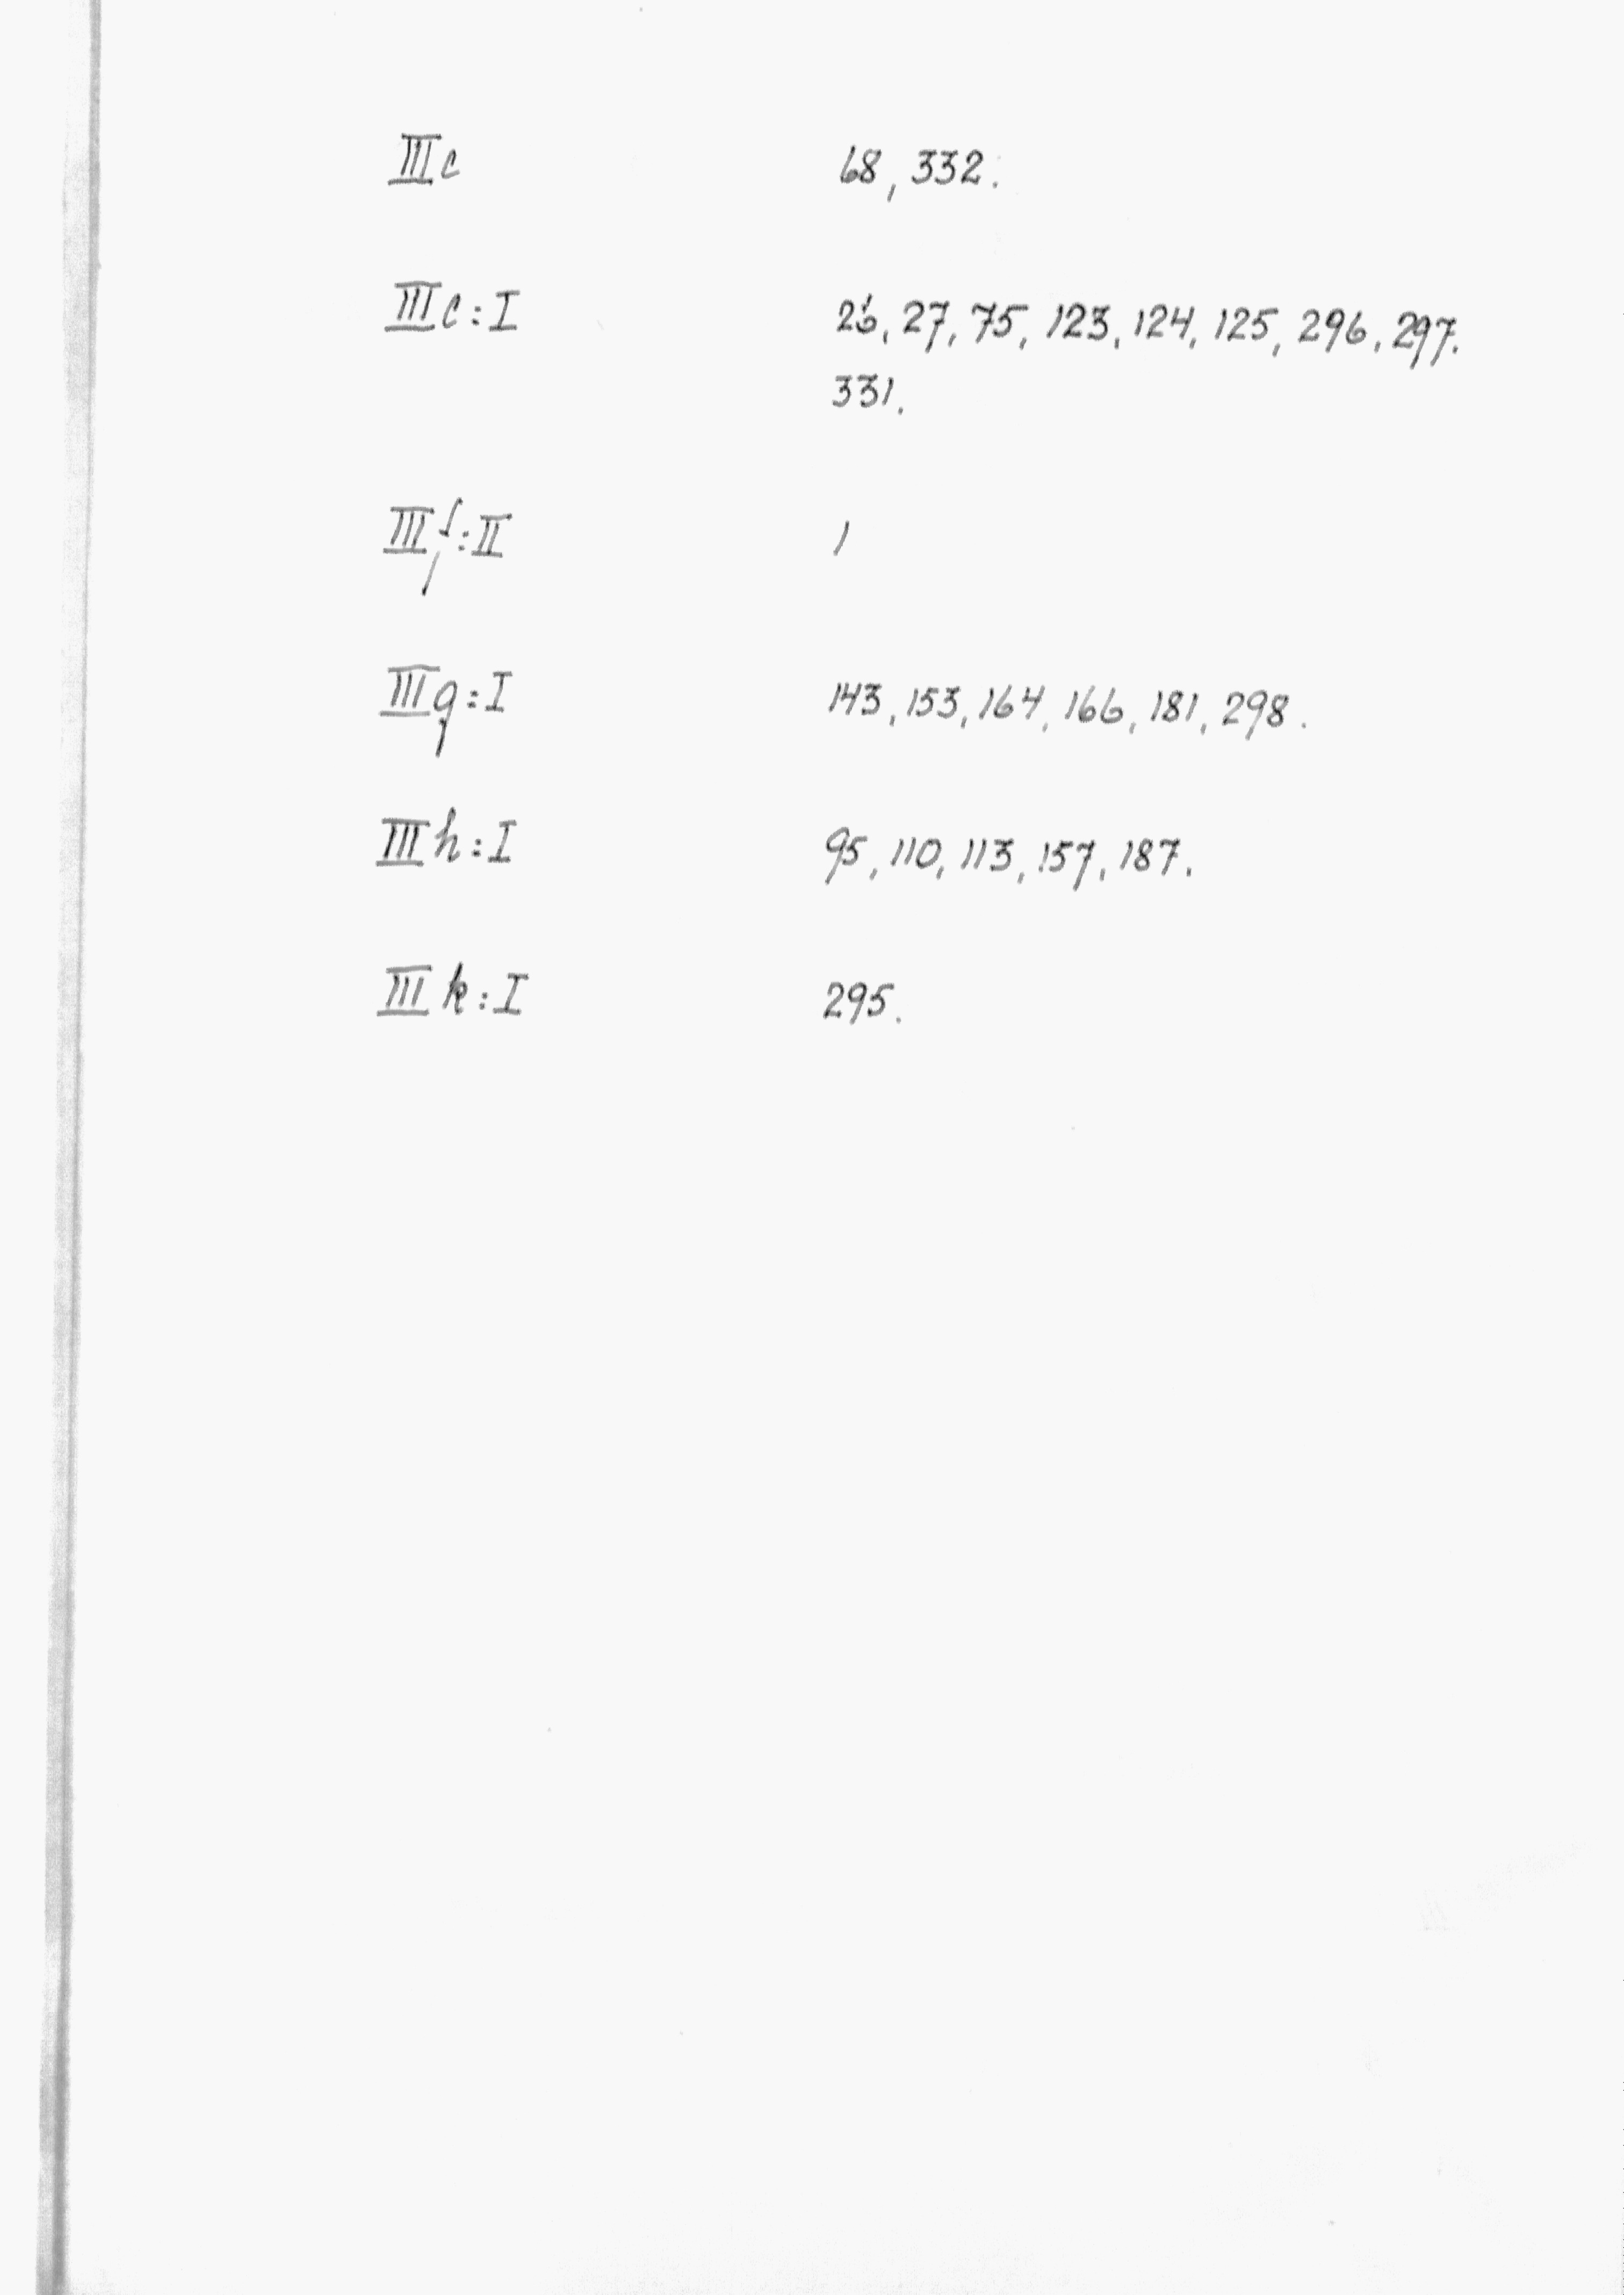 III c 68, 332.
III c : I 26, 27, 75, 123, 124, 125, 296, 297.
331.
III f : II 1
III g : I 143, 153, 164, 166, 181, 298.
III h : I 95, 110, 113, 157, 187.
III k : I 295.